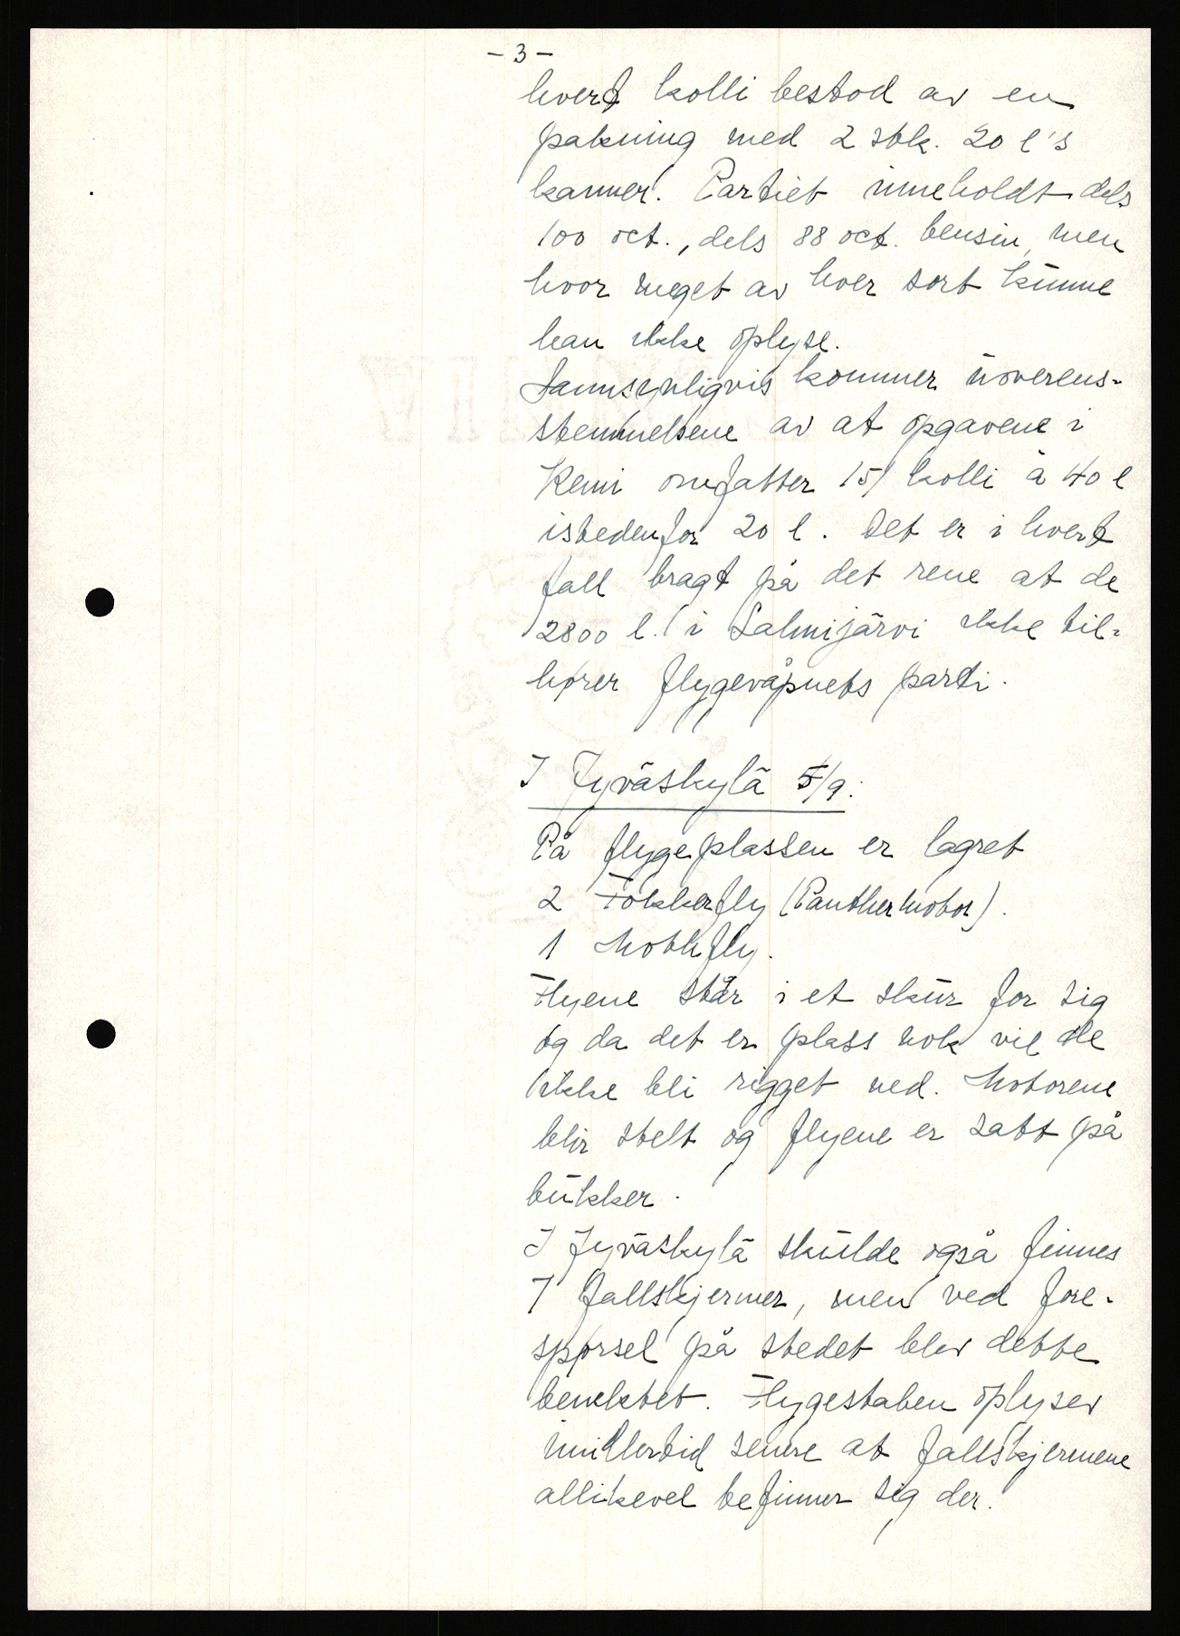 - 3 -
hvert kolli bestod av en
pakning med 2 stk. 20 l's
kanner. Partiet inneholdt dels
100 oct., dels 88 oct. bensin, men
hvor meget av hver sort kunne
han ikke oplyse.
Sannsynligvis kommer uoverens-
stemmelsene av at opgavene i
Kemi omfatter 151 kolli à 40 l
istedenfor 20 l. Det er i hvert
fall bragt på det rene at de
2800 l. i Salmijärvi ikke til-
hører flygevåpnets parti.
I Jyväskylä 5/9:
På flygeplassen er lagret
2 Fokkerfly (Panthermotor).
1 Mothfly.
Flyene står i et skur for sig
og da det er plass nok vil de
ikke bli rigget ned. Motorene
blir stelt og flyene er satt på
bukker.
I Jyväskylä skulde også finnes
7 fallskjermer, men ved fore-
spørsel på stedet blev dette
benektet. Flygestaben oplyser
imidlertid senere at fallskjermene
allikevel befinner sig der.